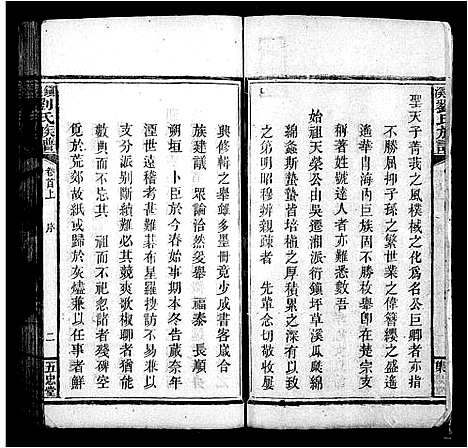 聖天子菁莪之風棫樸之化為名公巨卿者指
不勝屈抑子孫之繁世業之偉簪纓之盛遙
遙華胄海內巨族固不勝枚舉卽在楚宗支
姓氏號達人者亦難悉數吾
始祖天榮公由吳遷湘派衍鎭坪草溪瓜瓞綿
綿螽斯皆培植之厚積累之深有以
之第明昭穆辨親疎者 先輩念切敬收屢
典修輯之舉罇多墨冊竟少成書客歲合
族建議 眾論洽然爰舉 福泰 長順
朔垣 卜臣於今春始事期本冬吿蕆奈年
湮世遠稽察甚難暮布星羅搜求不易兼以
支分派別斷續難必其競爽歌椒
數典而不忘其 祖而不祀忽諸者殘碑空
覓於荒郊故紙或歸於灰燼兼以任事者鮮
劉氏族譜
卷首上 序
二
五忠堂